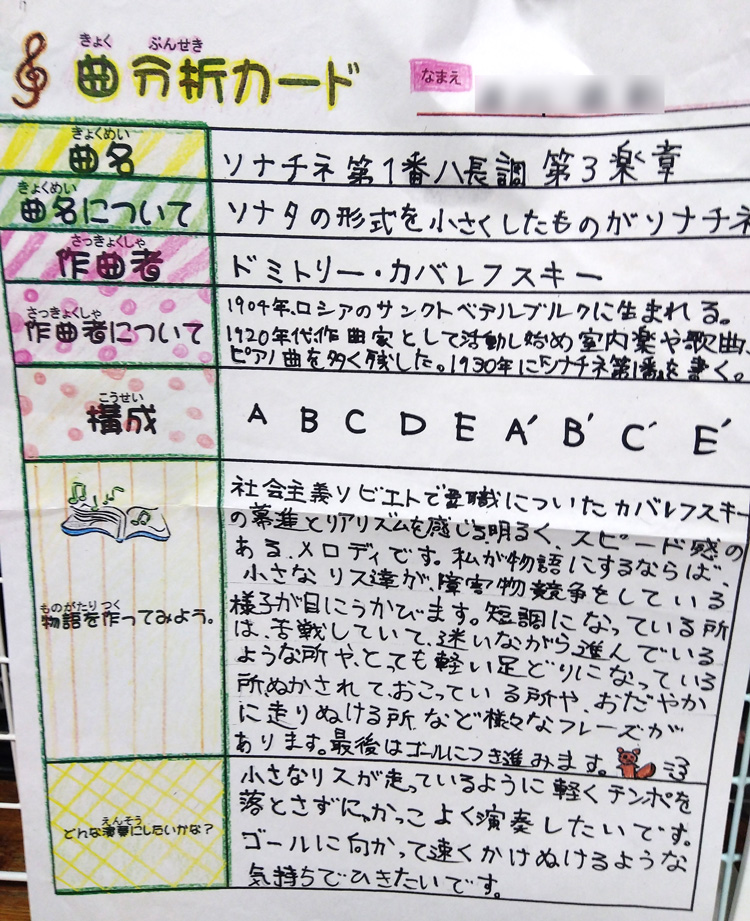 きょく ぶんせき
曲分析カード
なまえ
きょくめい
曲名
ソナチネ第1番ハ長調 第3楽章
きょくめい
曲名について
ソナタの形式を小さくしたものがソナチネ
さっきょくしゃ
作曲者
ドミトリー・カバレフスキー
さっきょくしゃ
作曲者について
1904年、ロシアのサンクトペテルブルクに生まれる。
1920年代作曲家として活動し始め室内楽や歌曲、
ピアノ曲を多く残した。1930年に「ソナチネ第1番」を書く。
こうせい
構成
A B C D E A′ B′ C′ E′
ものがたり つく
物語を作ってみよう。
社会主義ソビエトで要職についたカバレフスキー
の幕進とリアリズムを感じる明るく、スピード感の
ある、メロディです。私が物語にするならば、
小さなリス達が、障害物競争をしている
様子が目にうかびます。短調になっている所
は、苦戦していて、迷いながら進んでいる
ような所や、とても軽い足どりになっている
所ぬかされて、おこっている所や、おだやか
に走りぬける所、など様々なフレーズが
あります。最後はゴールにつき進みます。
えんそう
どんな演奏にしたいかな?
小さなリスが走っているように軽くテンポを
落とさずにかっこよく演奏したいです。
ゴールに向かって速くかけぬけるような
気持ちでひきたいです。